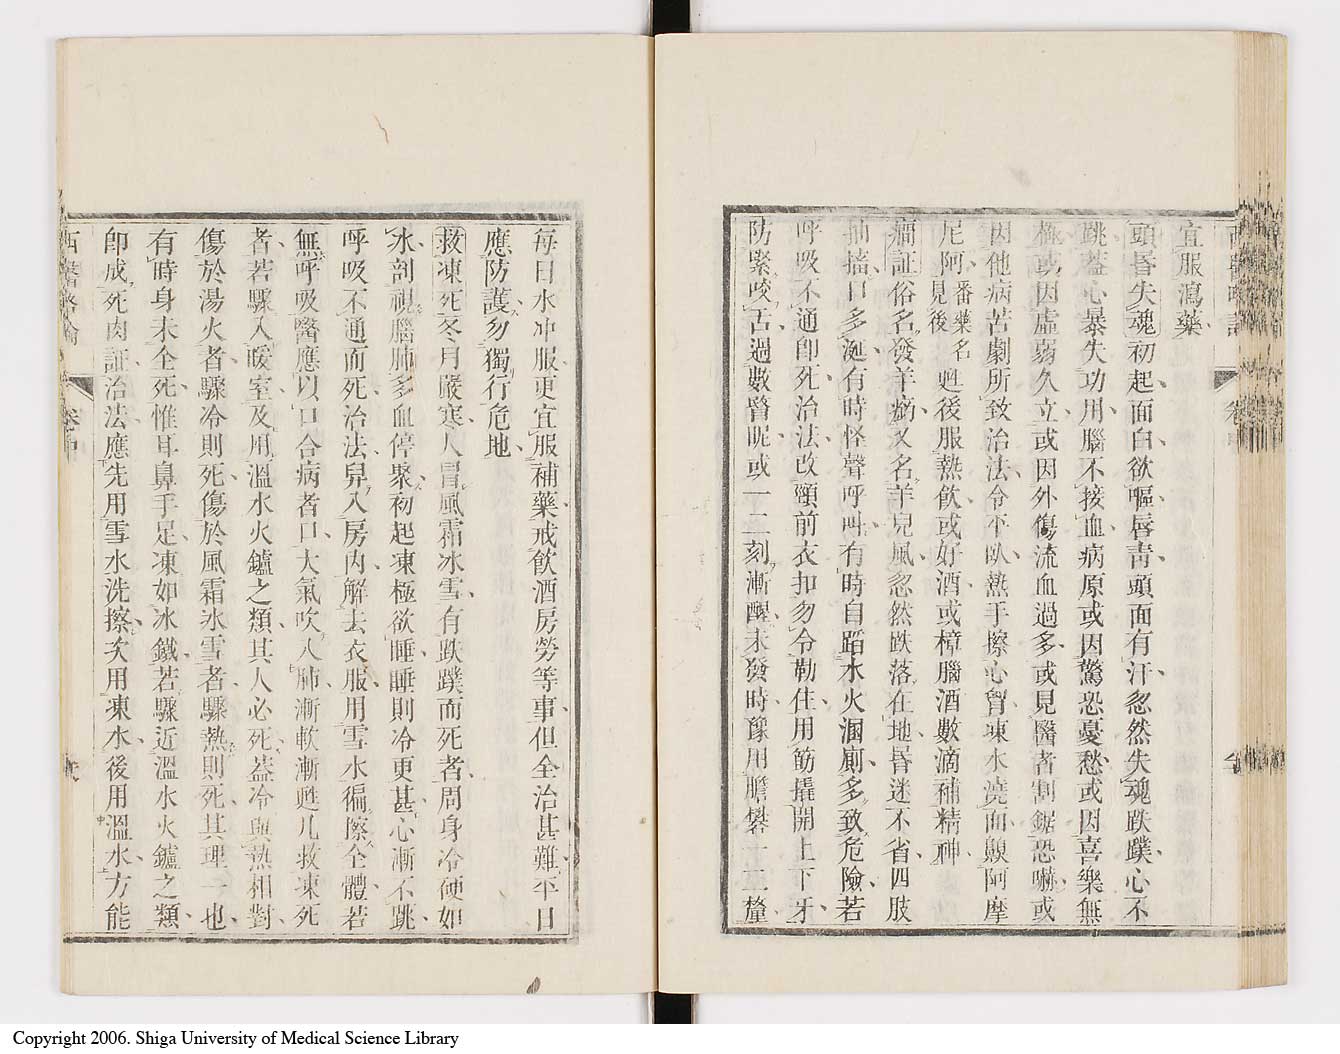 宜服瀉藥
頭昏失魂初起面白欲嘔唇靑頭面有汗忽然失魂跌蹼心不
跳葢心暴失功用腦不接血病原或因驚恐憂愁或因喜樂無
極或因虛弱久立或因外傷流血過多或見醫者割鋸恐嚇或
因他病苦劇所致治法令平臥熱手擦心胷凍水澆面䑔阿摩
尼阿番藥名見後甦後服熱飲或好酒或樟腦酒數滴補精神
癎証俗名發羊癎又名羊兒風忽然跌落在地昏迷不省四肢
抽搐口多涎有時怪聲呼叫有時自蹈水火溷廁多致危險若
呼吸不通卽死治法改頸前衣扣勿令勒住用筋撬開上下牙
防緊咬舌過數醫眤或一二刻漸醒未發時豫用膽礬十二釐
每日水冲服更宜服補藥戒飲酒房勞等事但全治甚難平日
應防護勿獨行危地
救凍死冬月嚴寒人冒風霜冰雪有跌蹼而死者周身冷硬如
冰剖視腦肺多血停聚初起凍極欲睡睡則冷更甚心漸不跳
呼吸不通而死治法舁入房內解去衣服用雪水徧擦全體若
無呼吸醫應以口合病者口大氣吹入肺漸軟漸甦凡救凍死
者若驟入暖室及用溫水火鑪之類其人必死葢冷與熱相對
傷於湯火者驟冷則死傷於風霜冰雪者驟熱則死其理一也
有時身未全死惟耳鼻手足凍如冰鐵若驟近溫水火鑪之類
卽成死肉証治法應先用雪水洗擦次用凍水後用溫水方能
西醫略論
卷中
Copyright 2006. Shiga University of Medical Science Library